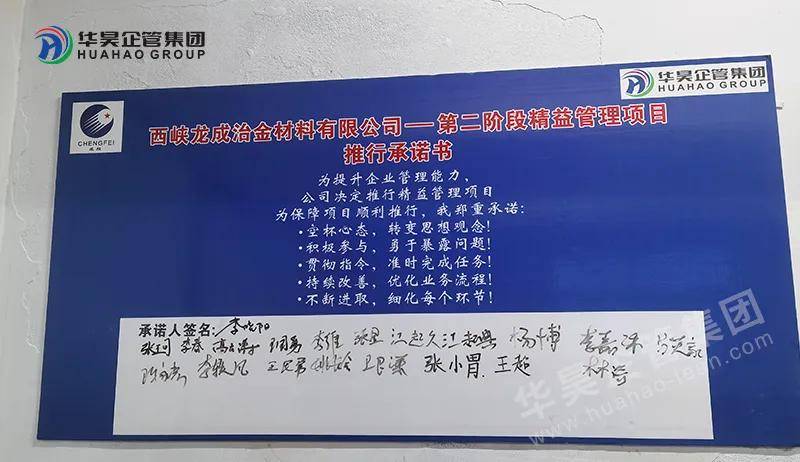 华昊企管集团
HUAHAO GROUP
华昊企管集团
HUAHAO GROUP
CHENGFEI
西峡龙成冶金材料有限公司——第二阶段精益管理项目
推行承诺书
为提升企业管理能力，
公司决定推行精益管理项目
为保障项目顺利推行，我郑重承诺：
·空杯心态，转变思想观念！
·积极参与，勇于暴露问题！
·贯彻指令，准时完成任务！
·持续改善，优化业务流程！
·不断进取，细化每个环节！
承诺人签名：李晓阳
张珂 李春 杨博
李俊凤 张小胃 王超
华昊企管集团
www.huahao-tem.com